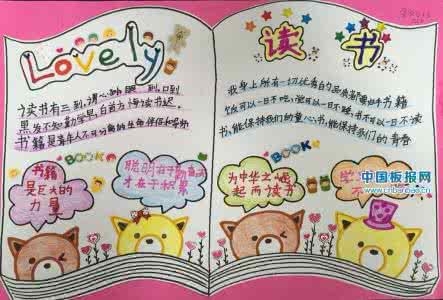 Lovely
读书有三到,谓心到 眼到,口到
黑发不知勤学早,白首方悔读书迟
书籍是青年人不可分离的生命伴侣和导师
BOOK
书籍
是巨大的
力量
聪明在于勤奋
才在于积累
读书
我身上所有一切优秀的品质都要归功书籍
饭可以一日不吃,觉可以一日不睡,书不可以一日不读
书,能保持我们的童心;书,能保持我们的青春
BOOK
为中华之崛
起而读书
学
不
中国板报网
www.cnbanbao.cn